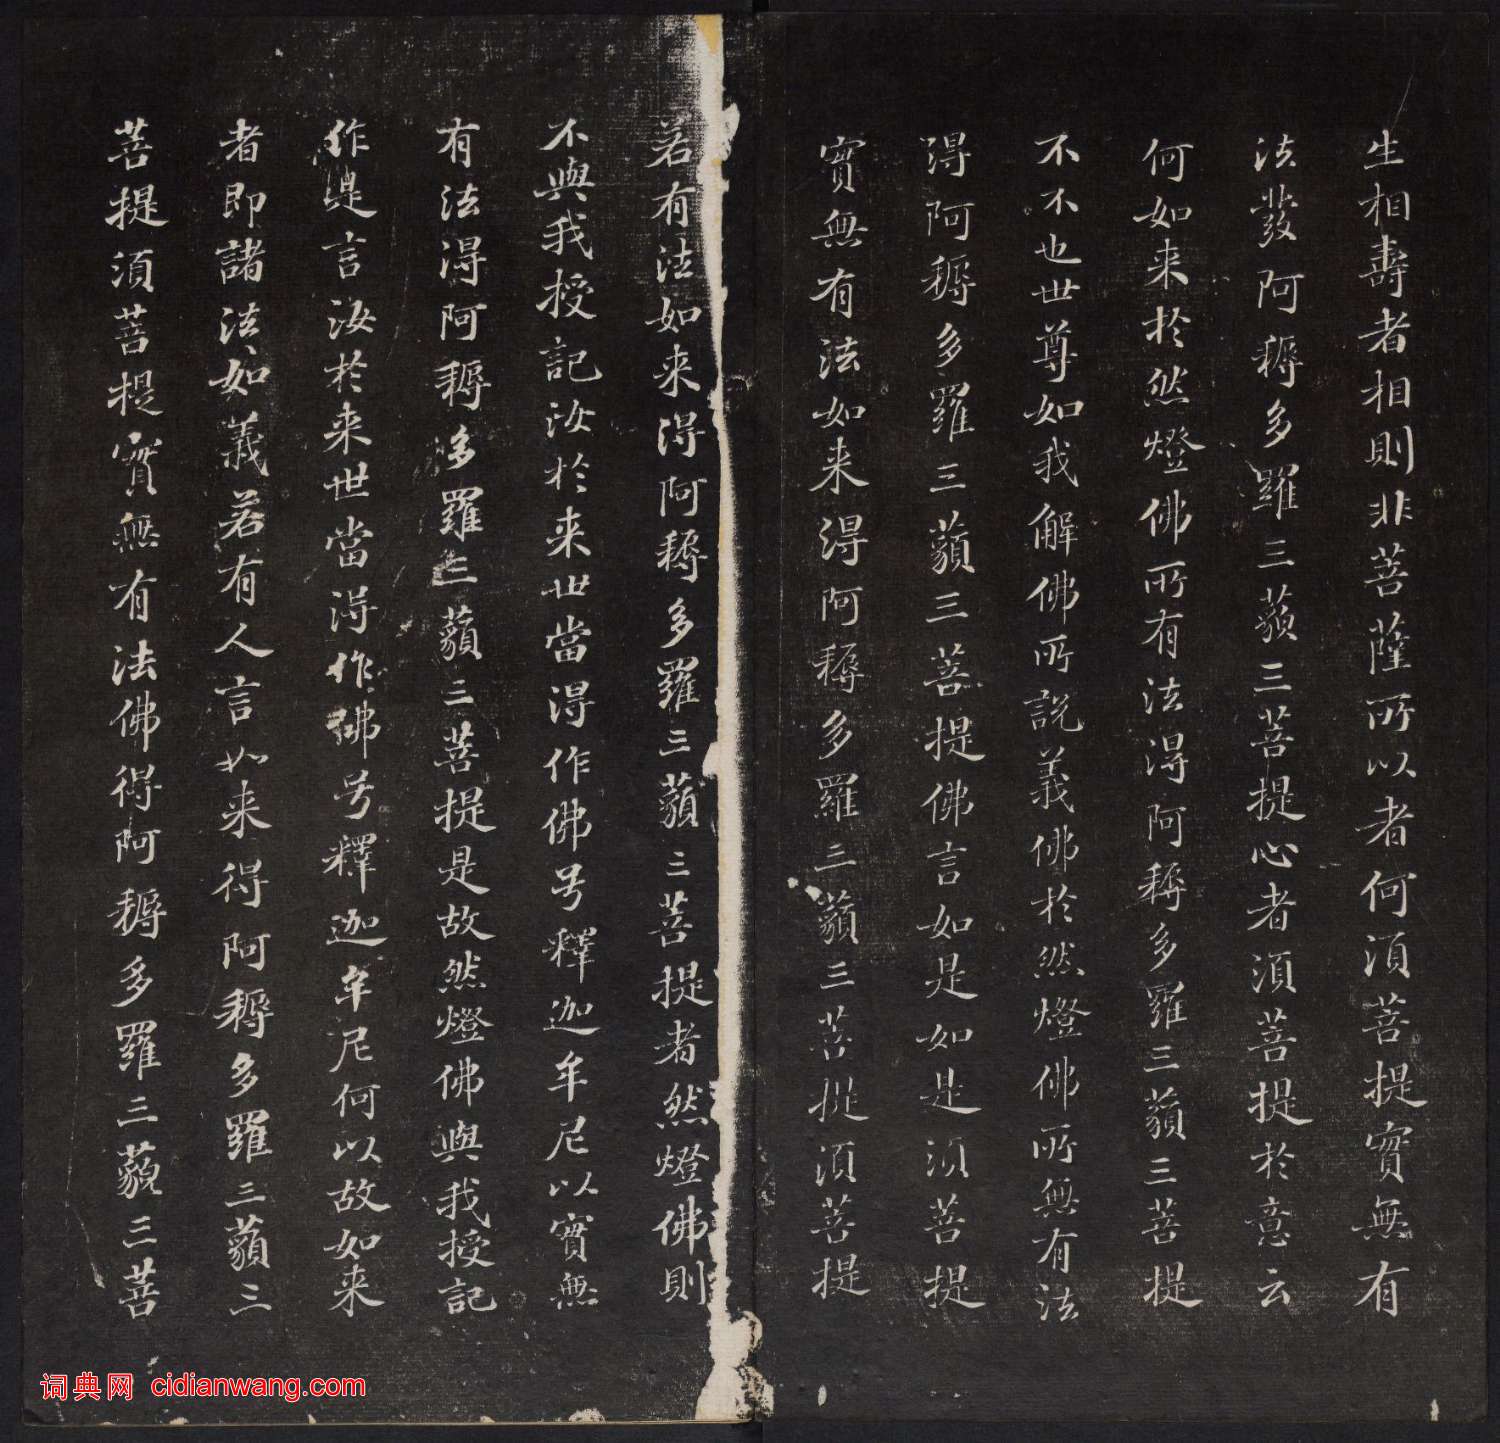 生相壽者相則非菩薩所以者何須菩提實無有
法發阿耨多羅三藐三菩提心者須菩提於意云
何如来於然燈佛所有法得阿耨多羅三藐三菩提
不不也世尊如我解佛所說義佛於然燈佛所無有法
得阿耨多羅三藐三菩提佛言如是如是須菩提
實無有法如来得阿耨多羅三藐三菩提須菩提
若有法如来得阿耨多羅三藐三菩提者然燈佛則
不與我授記汝於来世當得作佛号釋迦牟尼以實無
有法得阿耨多羅三藐三菩提是故然燈佛與我授記
作是言汝於来世當得作佛号釋迦牟尼何以故如来
者即諸法如義若有人言如来得阿耨多羅三藐三
菩提須菩提實無有法佛得阿耨多羅三藐三菩
词典网 cidianwang.com